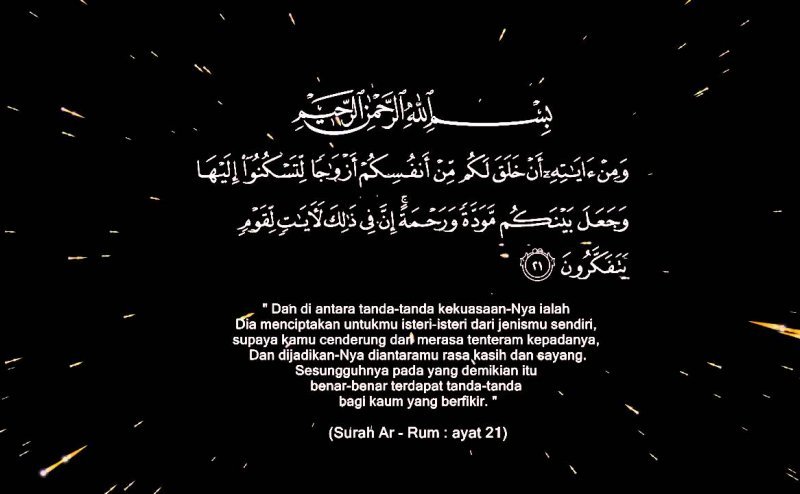 بِسْمِ اللَّهِ الرَّحْمَٰنِ الرَّحِيمِ
وَمِنْ ءَايَـٰتِهِۦٓ أَنْ خَلَقَ لَكُم مِّنْ أَنفُسِكُمْ أَزْوَٰجًا لِّتَسْكُنُوٓا۟ إِلَيْهَا
وَجَعَلَ بَيْنَكُم مَّوَدَّةً وَرَحْمَةً ۚ إِنَّ فِى ذَٰلِكَ لَـَٔايَـٰتٍ لِّقَوْمٍ
يَتَفَكَّرُونَ ٢١
" Dan di antara tanda-tanda kekuasaan-Nya ialah
Dia menciptakan untukmu isteri-isteri dari jenismu sendiri,
supaya kamu cenderung dan merasa tenteram kepadanya,
Dan dijadikan-Nya diantaramu rasa kasih dan sayang.
Sesungguhnya pada yang demikian itu
benar-benar terdapat tanda-tanda
bagi kaum yang berfikir. "
(Surah Ar - Rum : ayat 21)